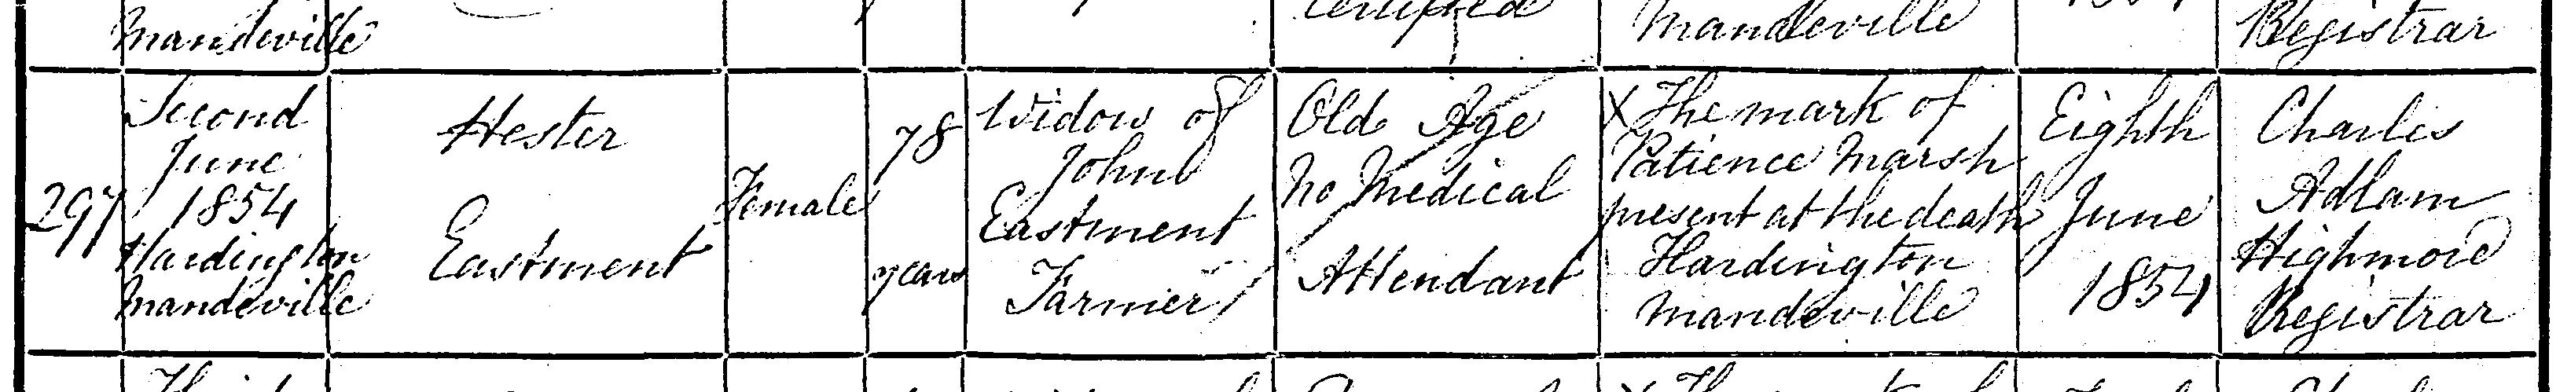 Mandeville
certified
Mandeville
Registrar
297
Second
June
1854
Hardington
Mandeville
Hester
Eastment
Female
78
years
Widow of
John
Eastment
Farmer
Old Age
No Medical
Attendant
X The mark of
Patience Marsh
present at the death
Hardington
Mandeville
Eighth
June
1854
Charles
Adlam
Highmore
Registrar